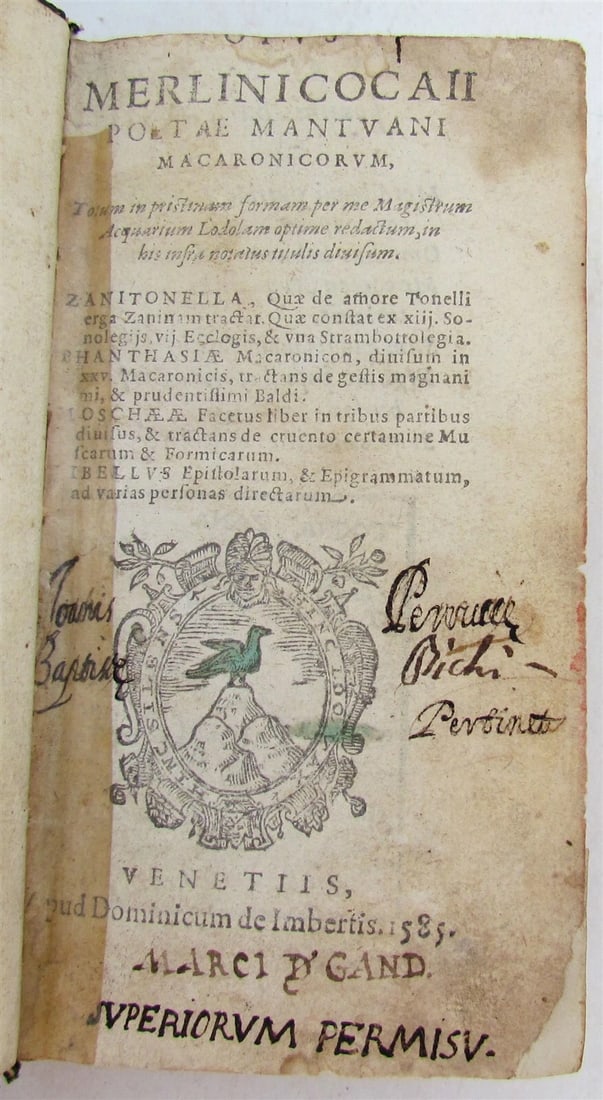 OPVS
MERLINI COCAII
POETAE MANTVANI
MACARONICORVM,
Totum in pristinam formam per me Magistrum
Acquarium Lodolam optime redactum, in
his infra notatus titulis diuisum.
ZANITONELLA, Quæ de amore Tonelli
erga Zaninam tractat. Quæ constat ex xiij. So-
nolegijs, vij. Ecclogis, & vna Strambottolegia.
PHANTHASIÆ Macaronicon, diuisum in
xxv. Macaronicis, tractans de gestis magnani
mi, & prudentissimi Baldi.
MOSCHÆÆ Facetus liber in tribus partibus
diuisus, & tractans de cruento certamine Mu
scarum & Formicarum.
LIBELLVS Epistolarum, & Epigrammatum,
ad varias personas directarum.
Ioannis
Baptistæ
Bichi
Pertinet
VENETIIS,
Apud Dominicum de Imbertis. 1585.
MARCI GAND.
SUPERIORVM PERMISV.